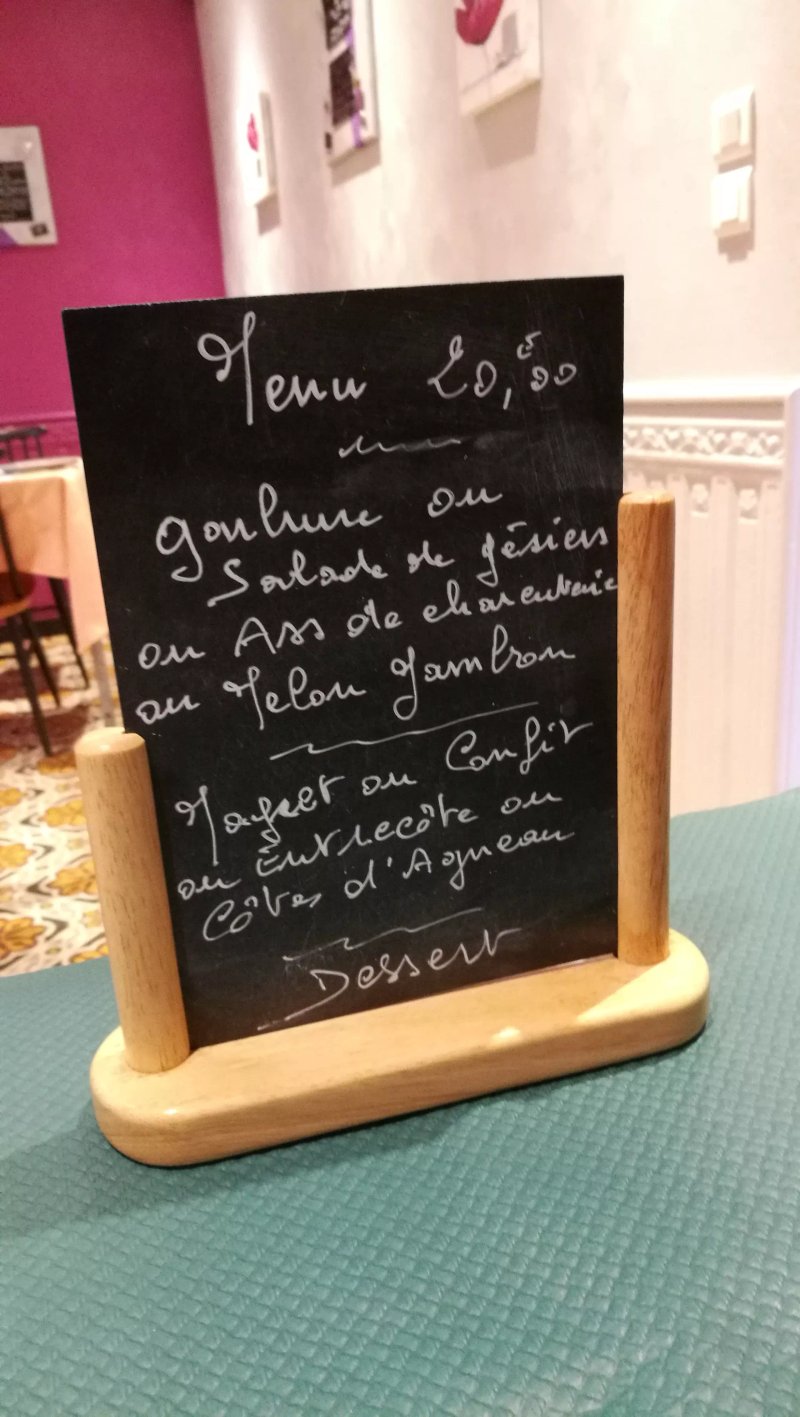 Menu 20,€00
Garbure ou
Salade de gésiers
ou Ass de charcuterie
ou Melon Jambon
Magret ou Confit
ou Entrecôte ou
Côtes d'Agneau
Dessert